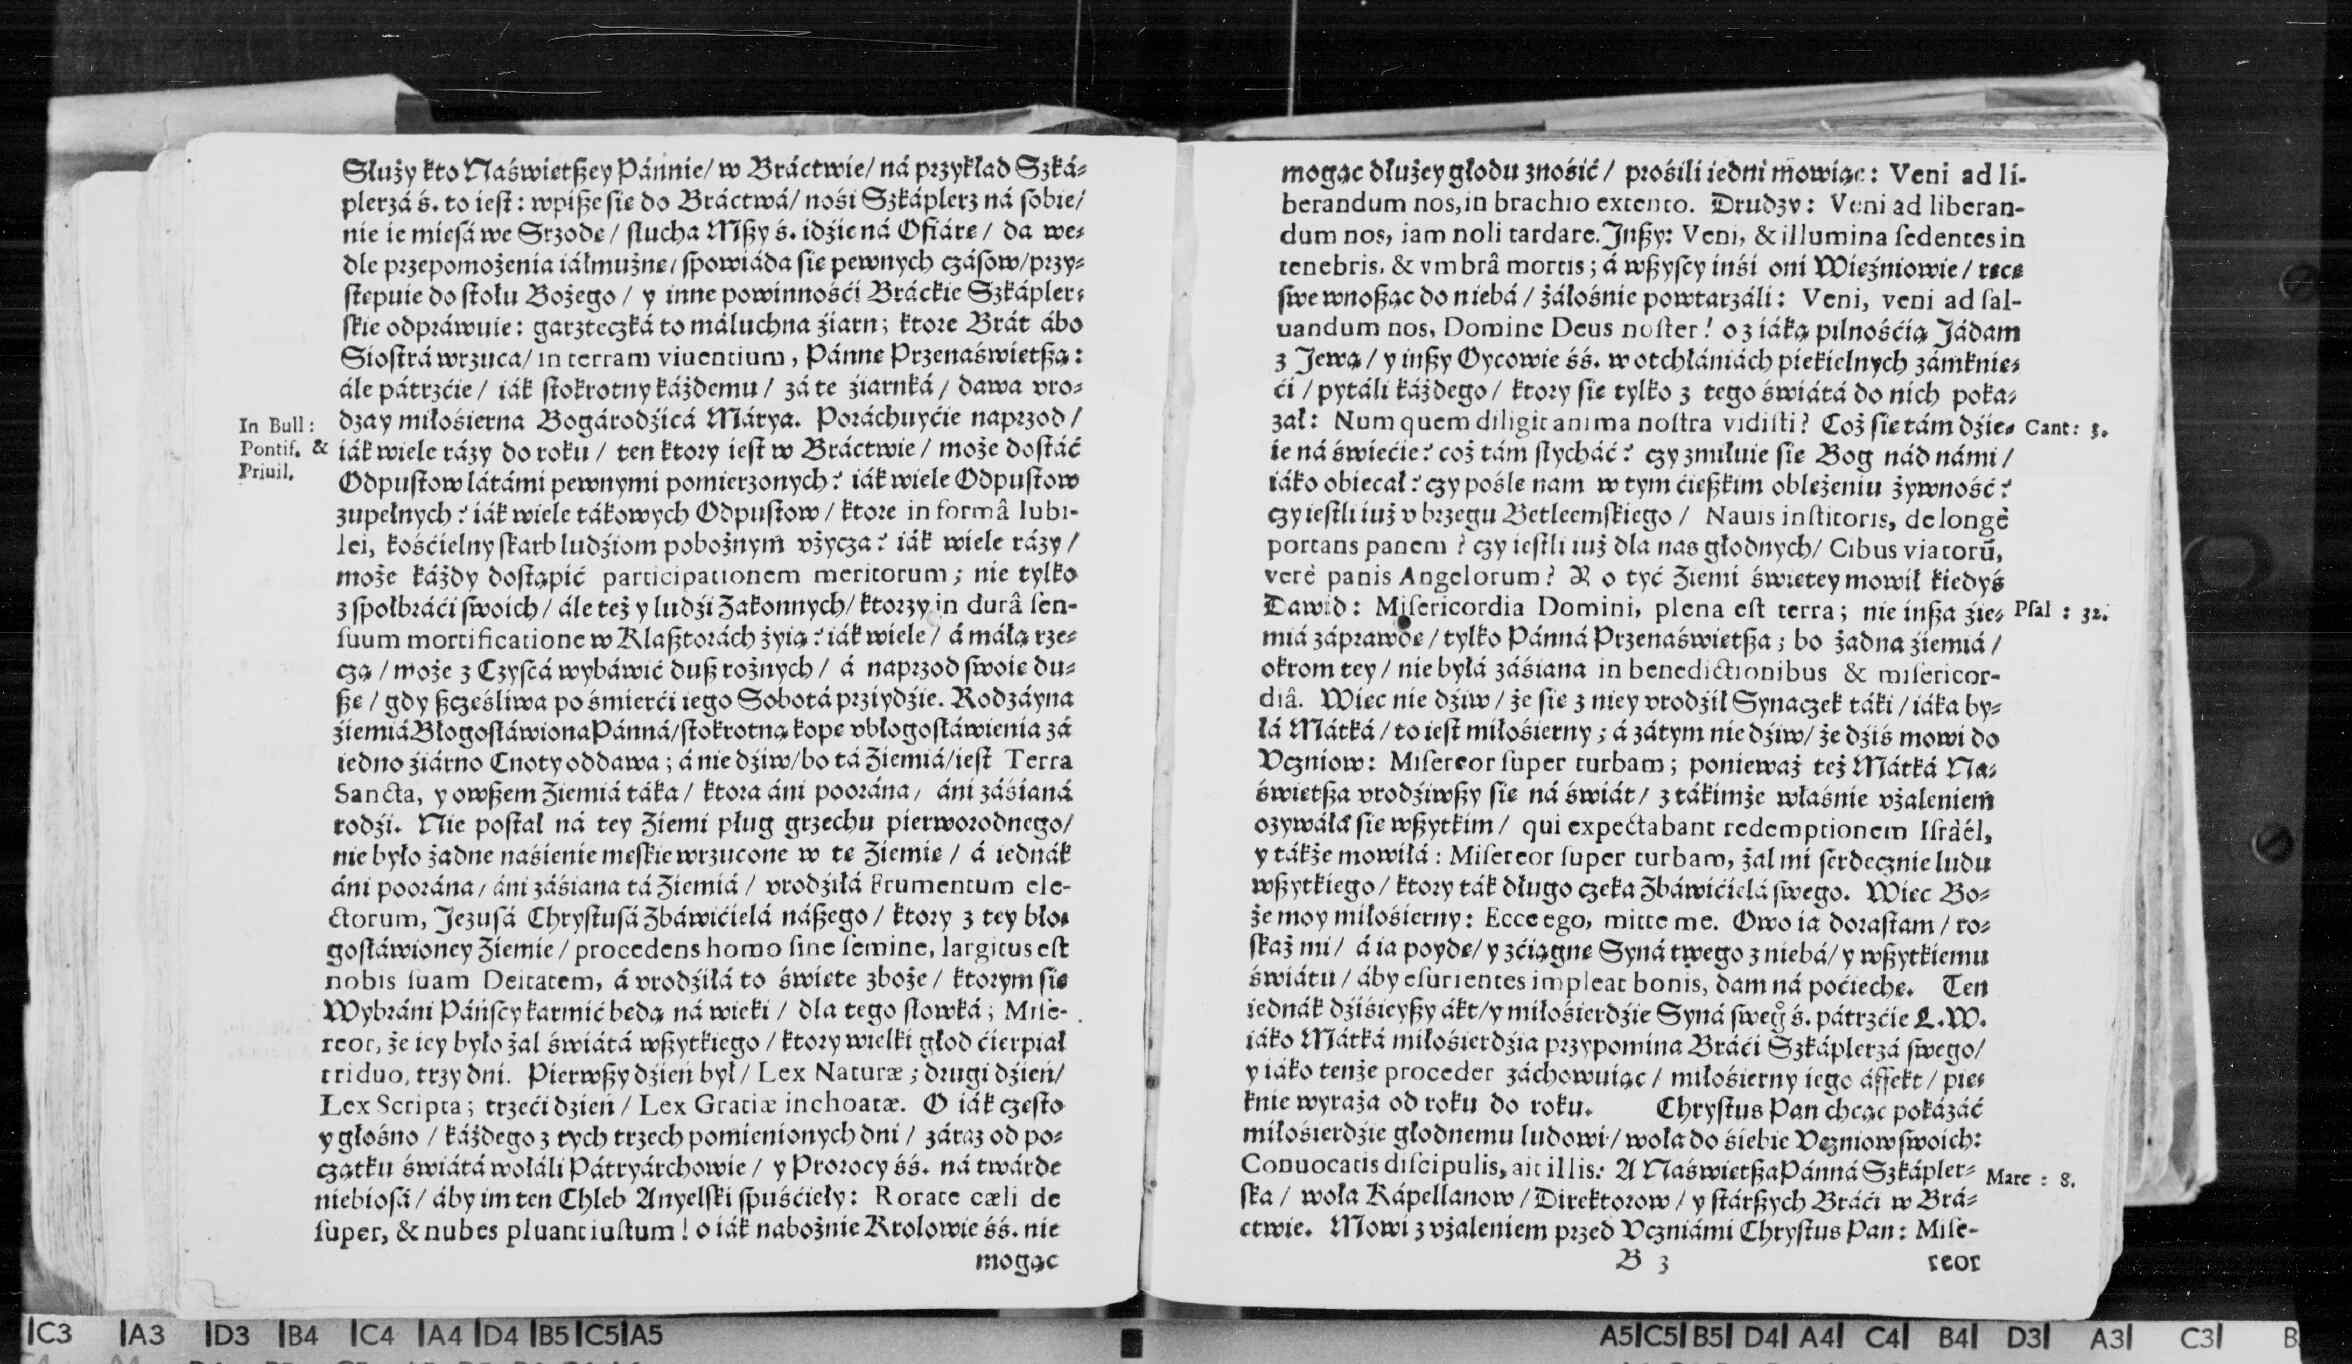 Służy kto Naświetßey Pánnie/ w Bráctwie/ ná przykład Szká-
plerzá ś. to iest: wpiße sie do Bráctwá/ nośi Szkáplerz ná sobie/
nie ie miesá we Srzode/ słucha Mßy ś. idźie ná Ofiáre/ da we-
dle przepomożenia iáłmużne/ spowiáda sie pewnych czásow/ przy-
stepuie do stołu Bożego/ y inne powinnośći Bráckie Szkápler-
skie odpráwuie: garzteczká to máluchna źiarn; ktore Brát ábo
Siostrá wrzuca/ in terram viuentium, Pánne Przenaświetßą:
ále pátrzćie/ iák stokrotny káżdemu/ zá te źiarnká/ dawa vro-
dzay miłośierna Bogárodźicá Márya. Poráchuyćie naprzod/
In Bull:
Pontif. &
Priuil.
iák wiele rázy do roku/ ten ktory iest w Bráctwie/ może dostáć
Odpustow látámi pewnymi pomierzonych? iák wiele Odpustow
zupełnych? iák wiele tákowych Odpustow/ ktore in formâ Iubi-
lei, kośćielny skarb ludźiom pobożnym vżycza? iák wiele rázy/
może káżdy dostąpić participationem meritorum; nie tylko
z społbráći swoich/ ále też y ludźi Zakonnych/ ktorzy in durâ sen-
suum mortificatione w Klaßtorách żyią? iák wiele/ á máłą rze-
czą/ może z Czyscá wybáwić duß rożnych/ á naprzod swoie du-
ße/ gdy ßcześliwa po śmierći iego Sobotá przyidźie. Rodzáyna
źiemiá Błogosłáwiona Pánná/ stokrotną kope vbłogosłáwienia zá
iedno źiárno Cnoty oddawa; á nie dźiw/ bo tá Ziemiá/ iest Terra
Sancta, y owßem Ziemiá táka/ ktora áni poorána/ áni záśianá
rodźi. Nie postał ná tey Ziemi pług grzechu pierworodnego/
nie było żadne naśienie meskie wrzucone w te Ziemie/ á iednák
áni poorána/ áni záśiana tá Ziemiá/ vrodźiłá Frumentum ele-
ctorum, Jezusá Chrystusá Zbáwićielá náßego/ ktory z tey bło-
gosłáwioney Ziemie/ procedens homo sine semine, largitus est
nobis suam Deitatem, á vrodźiłá to świete zboże/ ktorym sie
Wybráni Páńscy karmić bedą ná wieki/ dla tego słowká; Mise-
reor, że iey było żal świátá wßytkiego/ ktory wielki głod ćierpiał
triduo, trzy dni. Pierwßy dźień był/ Lex Naturæ; drugi dźień/
Lex Scripta; trzeći dzień/ Lex Gratiæ inchoatæ. O iák czesto
y głośno/ káżdego z tych trzech pomienionych dni/ záraz od po-
czątku świátá wołáli Pátryárchowie/ y Prorocy śś. ná twárde
niebiosá/ áby im ten Chleb Anyelski spuśćieły: Rorate cæli de
super, & nubes pluant iustum! o iák nabożnie Krolowie śś. nie
mogąc
mogąc dłużey głodu znośić/ prośili iedni mowiąc: Veni ad li-
berandum nos, in brachio extento. Drudzy: Veni ad liberan-
dum nos, iam noli tardare. Inßy: Veni, & illumina sedentes in
tenebris, & vmbrâ mortis; á wßyscy inśi oni Wieźniowie/ rece
swe wnoßąc do niebá/ żáłośnie powtarzáli: Veni, veni ad sal-
uandum nos, Domine Deus noster! o z iáką pilnośćią Jádam
z Jewą/ y inßy Oycowie śś. w otchłániách piekielnych zámknie-
ći/ pytáli káżdego/ ktory sie tylko z tego świátá do nich poka-
zał: Num quem diligit anima nostra vidisti? Coż sie tám dźie-
Cant: 3.
ie ná świećie? coż tám słycháć? czy zmiłuie sie Bog nád námi/
iáko obiecał? czy pośle nam w tym ćießkim obleżeniu żywność?
czy iestli iuż v brzegu Betleemskiego/ Nauis institoris, de longè
portans panem? czy iestli iuż dla nas głodnych/ Cibus viatorũ,
verè panis Angelorum? A o tyć Ziemi świetey mowił kiedyś
Dawid: Misericordia Domini, plena est terra; nie inßa źie-
Psal: 32.
miá záprawde/ tylko Pánná Przenaświetßa; bo żadna źiemiá/
okrom tey/ nie byłá záśiana in benedictionibus & misericor-
diâ. Wiec nie dźiw/ że sie z niey vrodźił Synaczek táki/ iáka by-
łá Mátká/ to iest miłośierny; á zátym nie dźiw/ że dźiś mowi do
Vczniow: Misereor super turbam; ponieważ też Mátká Na-
świetßa vrodźiwßy sie ná świát/ z tákimże właśnie vżaleniem
ozywáłá sie wßytkim/ qui expectabant redemptionem Isràél,
y tákże mowiłá: Misereor super turbam, żal mi serdecznie ludu
wßytkiego/ ktory ták długo czeka Zbáwićielá swego. Wiec Bo-
że moy miłośierny: Ecce ego, mitte me. Owo ia dorastam/ ro-
skaż mi/ á ia poyde/ y zćiągne Syná twego z niebá/ y wßytkiemu
świátu/ áby esurientes impleat bonis, dam ná poćieche. Ten
iednák dźiśieyßy ákt/ y miłośierdźie Syná sweg̊ ś. pátrzćie L.W.
iáko Mátká miłośierdźia przypomina Bráći Szkáplerzá swego/
y iáko tenże proceder záchowuiąc/ miłośierny iego áffekt/ pie-
knie wyraża od roku do roku. Chrystus Pan chcąc pokázáć
miłośierdźie głodnemu ludowi/ woła do śiebie Vczniow swoich:
Conuocatis discipulis, ait illis: A Naświetßa Pánná Szkápler-
Marc: 8.
ska/ woła Kápellanow/ Direktorow/ y stárßych Bráći w Brá-
ctwie. Mowi z vżaleniem przed Vczniámi Chrystus Pan: Mise-
B 3 reor
C3 A3 D3 B4 C4 A4 D4 B5 C5 A5
A5 C5 B5 D4 A4 C4 B4 D3 A3 C3 B